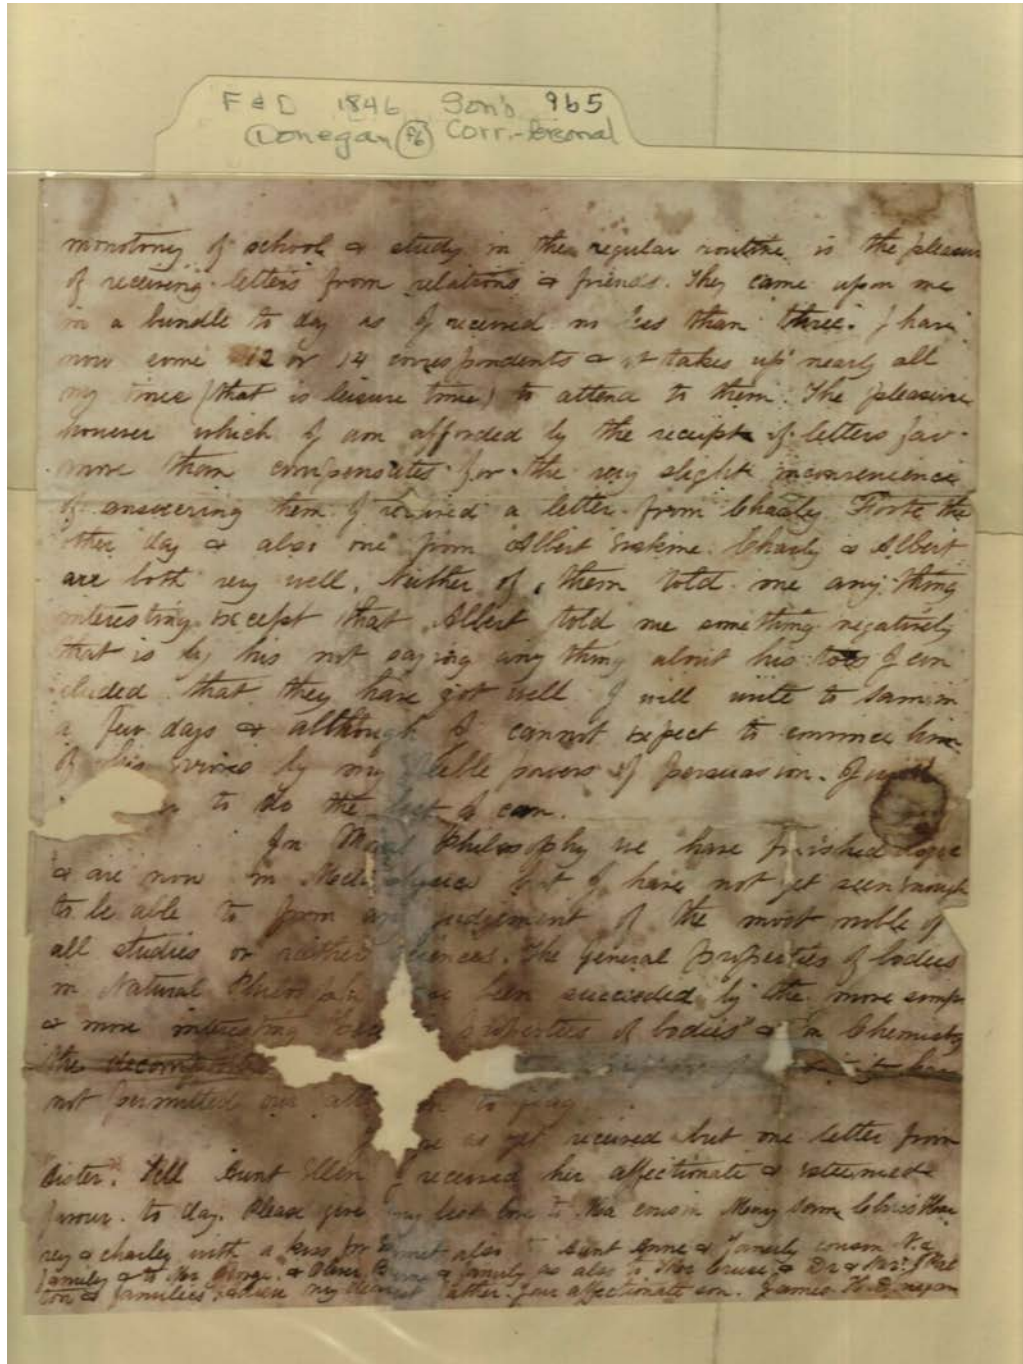 F & D 1846 Son's 965
Donegan F6 Corr.-Personal
monotony of school & study in the regular routine is the pleasure
of receiving letters from relations & friends. They came upon me
in a bundle to day as I received no less than three. I have
now some 12 or 14 correspondents & it takes up nearly all
my time (that is leisure time) to attend to them. The pleasure
however which I am afforded by the receipt of letters far
more than compensates for the very slight inconvenience
of answering them. I received a letter from Charley Foote the
other day & also one from Albert Erskine. Charly & Albert
are both very well. Neither of them told me any thing
interesting except that Albert told me something negatively
that is by his not saying any thing about his toes I con
cluded that they have got well. I will write to Sam in
a few days & although I cannot expect to convince him
of his by my feeble powers of persuasion. I will
to do the best I can.
In Moral Philosophy we have finished Logic
& are now in but I have not yet seen enough
to be able to from any judgement of the most noble of
all studies or rather sciences. The General properties of bodies
in Natural been succeeded by the more simp
& more interesting properties of bodies" & In Chemistry
the have
not permitted our to
as yet received but one letter from
Sister. Tell Aunt Ellen I received her affectionate & esteemed
favour to day. Please give my best love to Ma cousin Mary
& charley with a kiss for also to Aunt Anne & family cousin
family & to Mr George & Oliver & family as also to & Dr & Mr
& families. my dearest Father. Your affectionate son. James H. Donegan